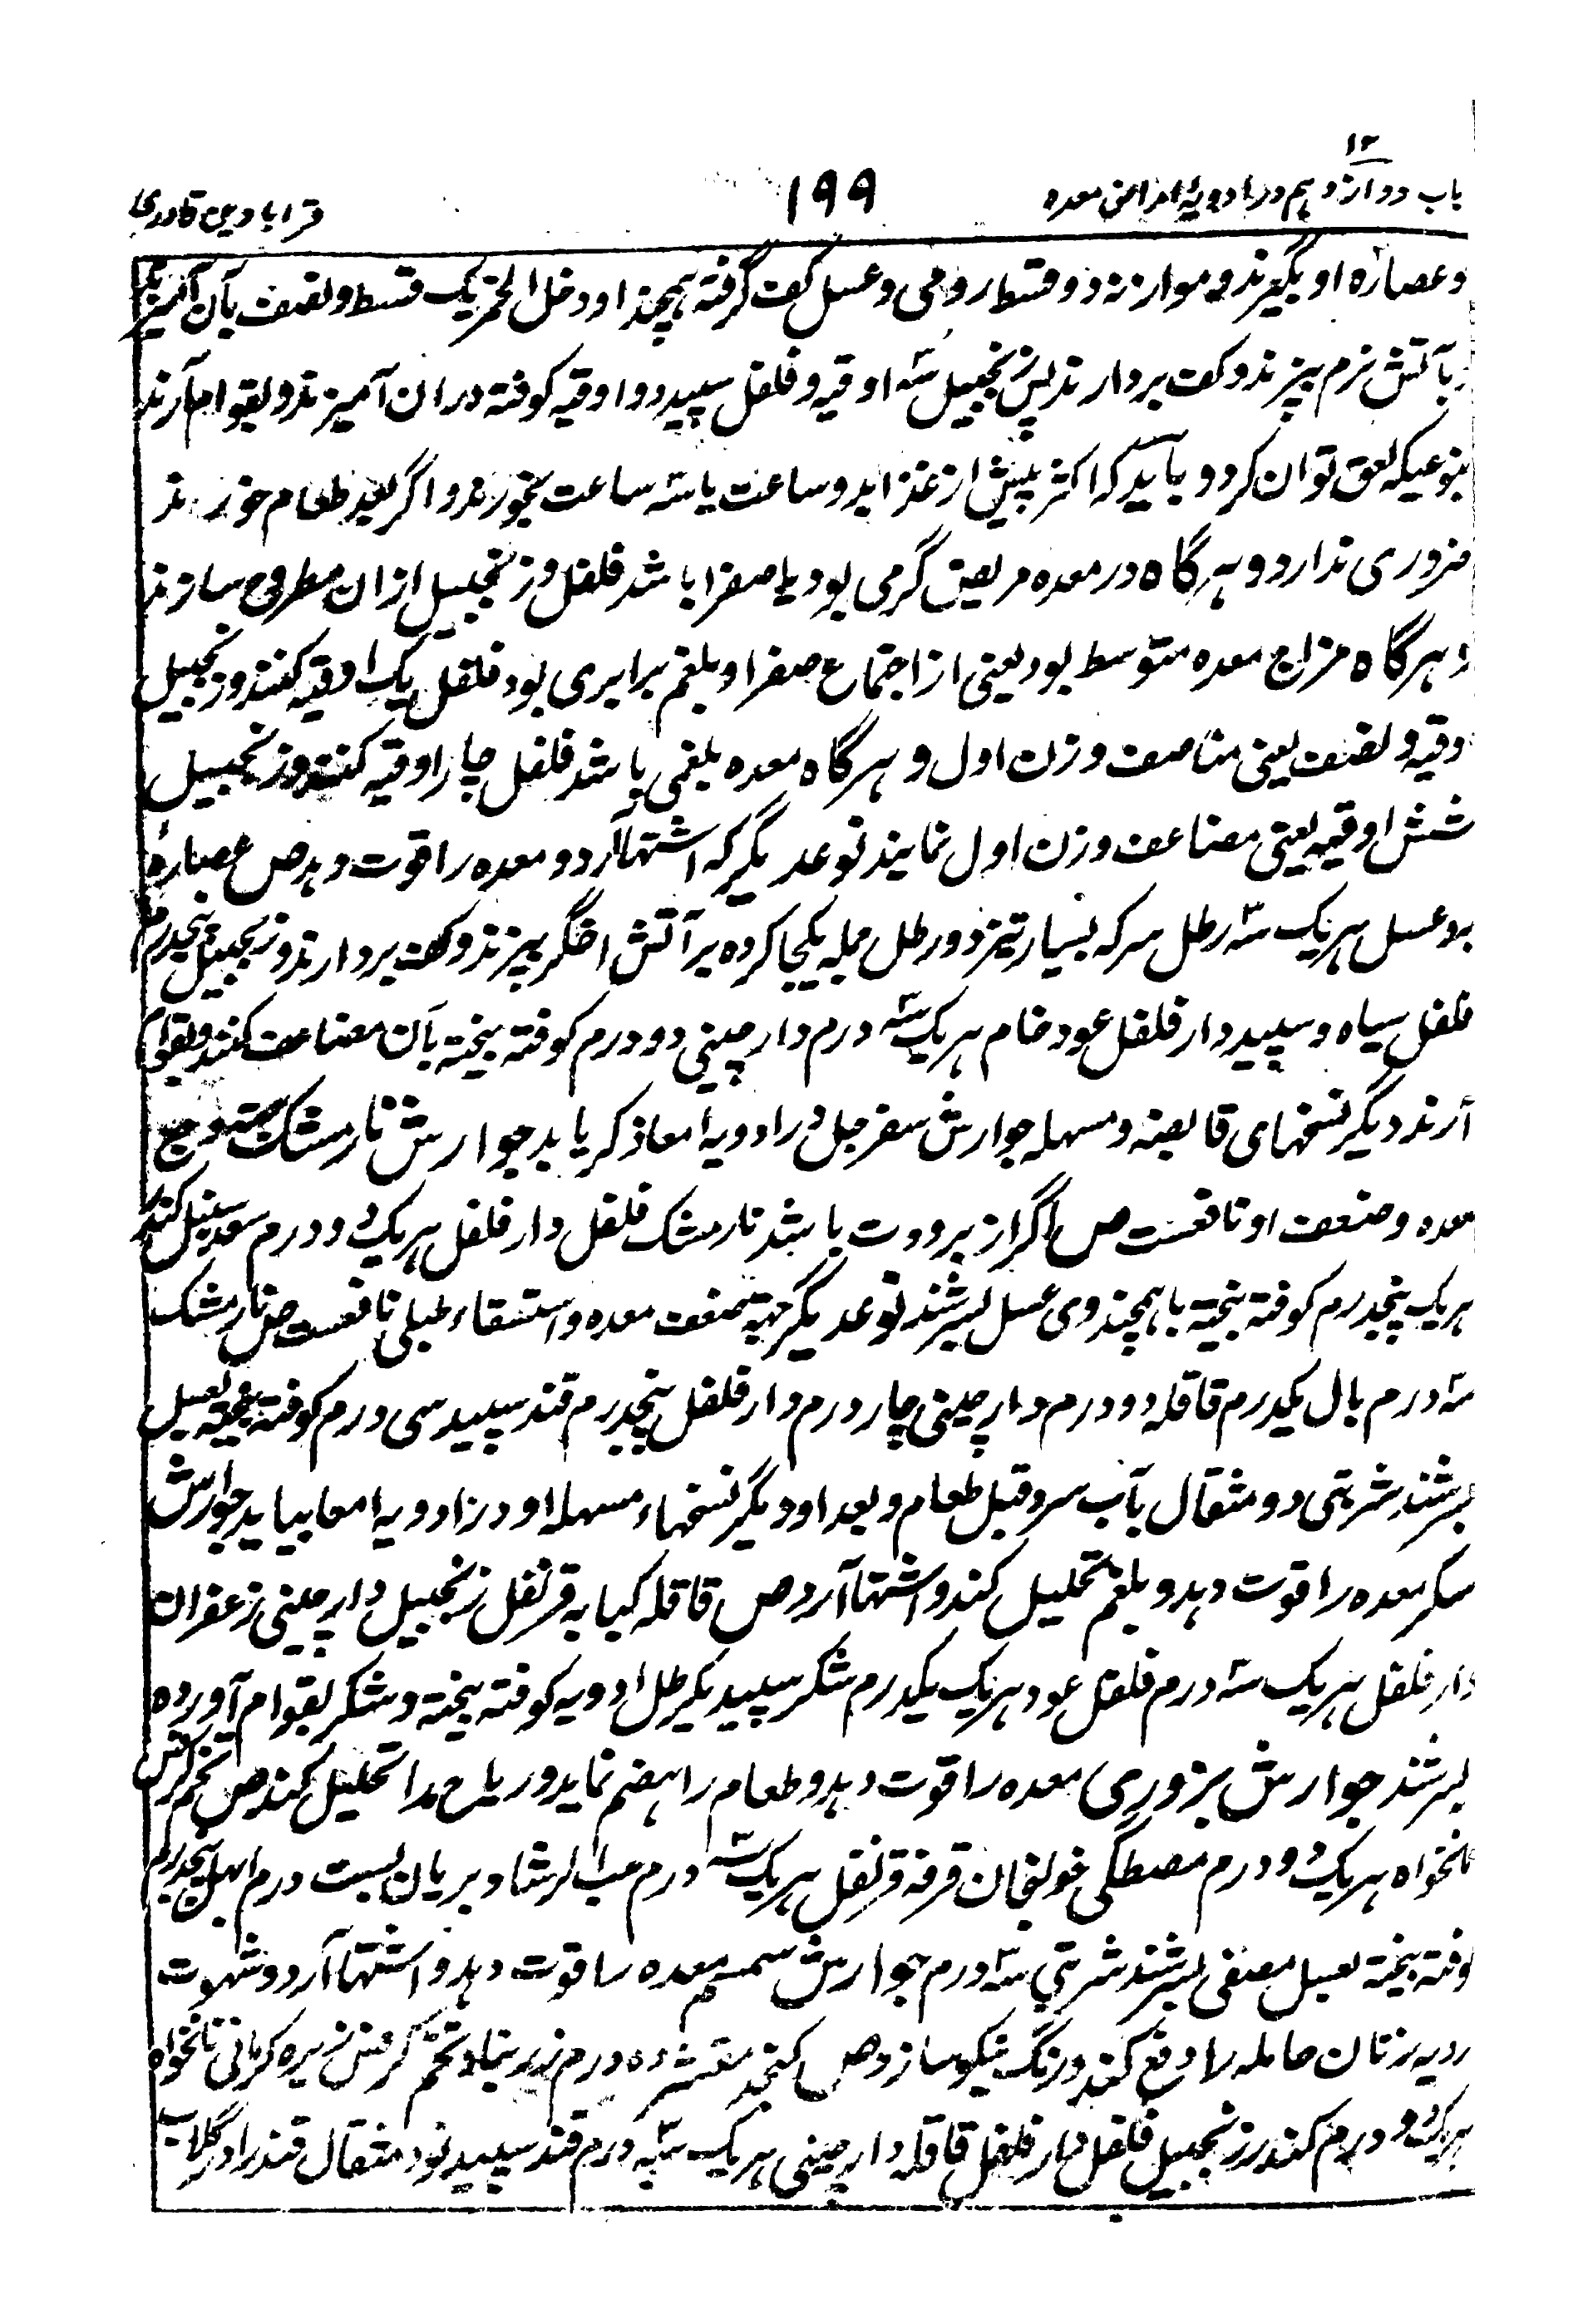 ۱۲
باب دوازدهم در ادویهٔ امراض معده
۱۹۹
قرابادین قادری
و عصارهٔ او بگیرند و موازنه دو قسط رومی و عسل کف گرفته همچند او و خل الخمر یک قسط و نصف بآن آمیزند
بآتش نرم بپزند و کف بردارند پس زنجبیل سه اوقیه و فلفل سپید دو اوقیه کوفته دران آمیزند و بقوام آرند
بنوعیکه لعق توان کرد و باید که اکثر پیش از غذا بدو ساعت یا سه ساعت بخورند و اگر بعد طعام خورند
ضروری ندارد و هرگاه در معده مریض گرمی بود یا صفرا باشد فلفل و زنجبیل ازان مطروح سازند
و هرگاه مزاج معده متوسط بود یعنی از اجتماع صفرا و بلغم برابری بود فلفل یک اوقیه کنند و زنجبیل
وقیه و نصف یعنی مناصف وزن اول و هرگاه معده بلغمی باشد فلفل چار اوقیه کنند و زنجبیل
شش اوقیه یعنی مضاعف وزن اول نمایند نوعدیگر که اشتها آرد و معده را قوت دهد ص عصارهٔ
به و عسل هر یک سه رطل سرکه بسیار تیز دو رطل جمله یکجا کرده بر آتش اخگر بپزند و کف بردارند و زنجبیل پنجدرم
فلفل سیاه و سپید دار فلفل عود خام هر یک سه درم دارچینی دو درم کوفته بیخته بآن مضاعف کنند و بقوام
آرند دیگر نسخهای قابضه و مسهله جوارش سفرجل در ادویه امعا ذکر یابد جوارش نارمشک
معده و ضعف او نافعست ص اگر از برودت باشد نارمشک فلفل دار فلفل هر یک دو درم سعد سنبل کندر
هر یک پنجدرم کوفته بیخته باهمچند وی عسل بسرشند نوعدیگر جهة ضعف معده و استسقاء طبلی نافعست ص نارمشک
سه درم بال یکدرم قاقله دو درم دارچینی چار درم دار فلفل پنجدرم قند سپید سی درم کوفته بیخته بعسل
بسرشند شربتی دو مثقال بآب سرد قبل طعام و بعد او و دیگر نسخهاء مسهله او در ادویه امعا بیاید جوارش
سکر معده را قوت دهد و بلغم تحلیل کند و اشتها آرد ص قاقله کبابه قرنفل زنجبیل دارچینی زعفران
دار فلفل هر یک سه درم فلفل عود هر یک یکدرم شکر سپید یکرطل ادویه کوفته بیخته و شکر بقوام آورده
بسرشند جوارش بزوری معده را قوت دهد و طعام را هضم نماید و ریاح را تحلیل کند ص تخم کرفس
نانخواه هر یک دو درم مصطگی خولنجان قرفه قرنفل هر یک سه درم حب الرشاد بریان بست درم ابهل پنجدرم
کوفته بیخته بعسل مصفی بسرشند شربتی سه درم جوارش سمسم معده را قوت دهد و اشتها آرد و شهوت
ردیه زنان حامله را دفع کند و رنگ نیکو سازد ص کنجد مقشر ده درم زرنباد تخم کرفس زیره کرمانی نانخواه
هریک دو درم کندر زنجبیل فلفل دار فلفل قاقله دارچینی هر یک سه درم قند سپید نود مثقال قند را در گلاب